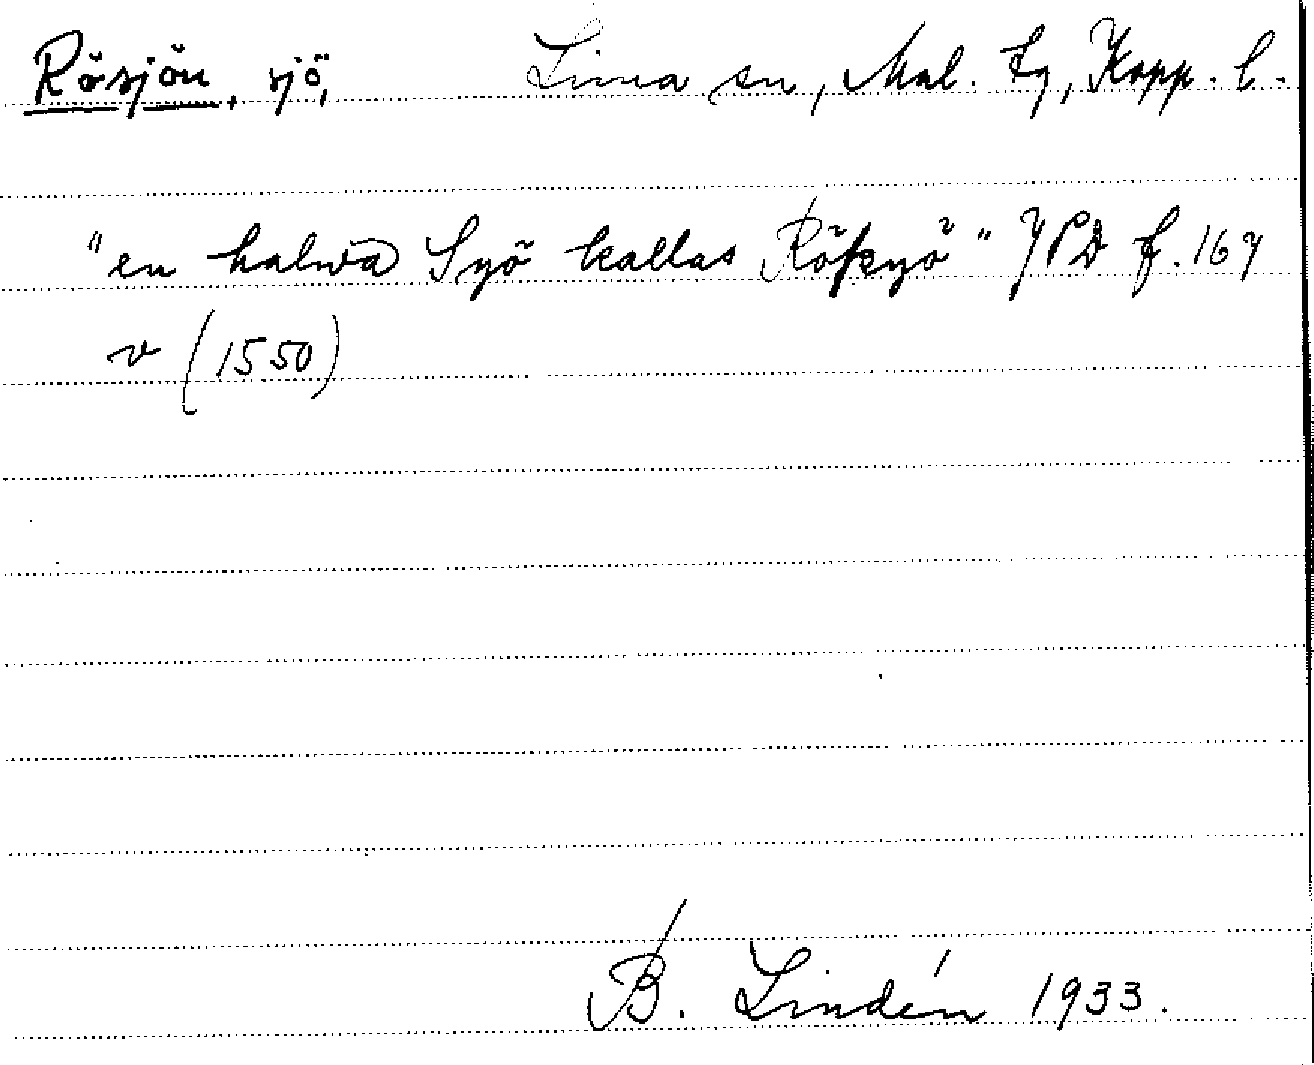 Rösjön, sjö, Lima sn, Mal. tg, Kopp. l.
"en halwa Syö kallas Röskyö" JPD f. 167
v (1550)
B. Lindén 1933.